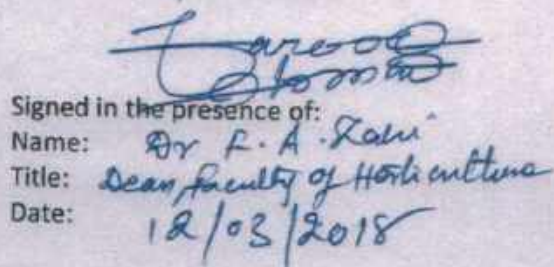 Signed in the presence of:
Name: Dr F. A.
Title: Dean, Faculty of Horticulture
Date: 12/03/2018